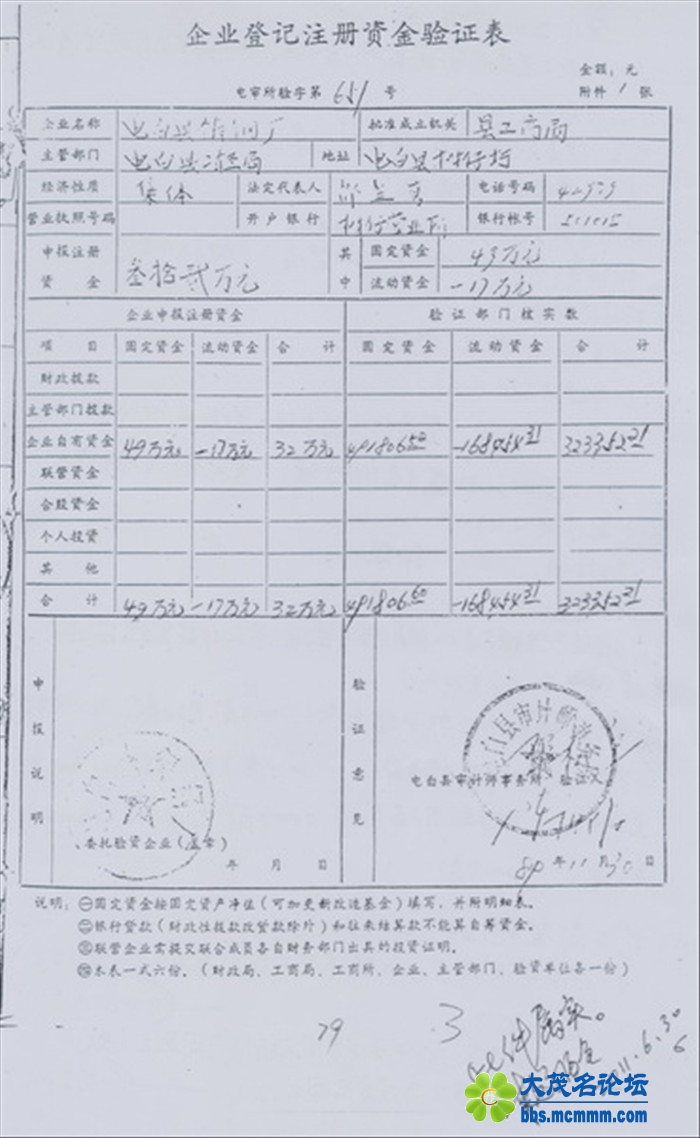 企业登记注册资金验证表
金额：元
电审所验字第 651 号
附件 1 张
企业名称 电白县 厂 批准成业机关 县工商局
主管部门 电白县 局 地址 电白县
经济性质 集体 法定代表人 电话号码
营业执照号码 开户银行 营业所 银行帐号
申报注册资金 叁拾贰万元 其中 固定资金 49万元
流动资金 -17万元
企业申报注册资金 验证部门核实数
项目 固定资金 流动资金 合计 固定资金 流动资金 合计
财政拨款
主管部门拨款
企业自有资金 49万元 -17万元 32万元 491806 -168454 31 323352
联营资金
合股资金
个人投资
其他
合计 49万元 -17万元 32万元 491806 -168454 31 323352
申报说明 验证意见
电白县审计师事务所 验证人
委托验资企业（盖章）
年 月 日
89年11月30日
说明：㊀固定资金按固定资产净值（可加更新改造基金）填写，并附明细表。
㊁银行贷款（财政性拨款改贷款除外）和往来结算款不能算自筹资金。
㊂联营企业需提交联合成员各自财务部门出具的投资证明。
㊃本表一式六份。（财政局、工商局、工商所、企业、主管部门、验资单位各一份）
79 3
大茂名论坛
bbs.mcmmm.com